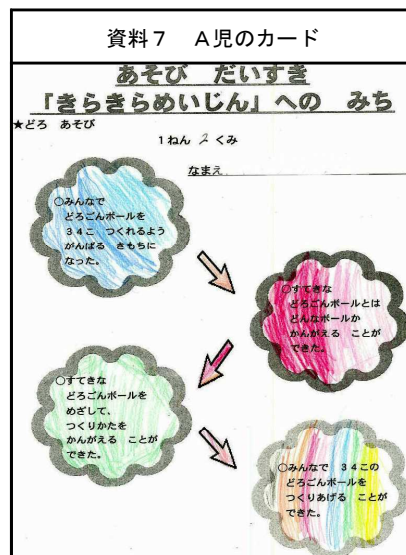 資料7　A児のカード
あそび　だいすき
「きらきらめいじん」への　みち
★どろ　あそび
1ねん 2 くみ
なまえ
○みんなで
どろごんボールを
34こ　つくれるよう
がんばる　きもちに
なった。
○すてきな
どろごんボールとは
どんなボールか
かんがえる　ことが
できた。
○すてきな
どろごんボールを
めざして、
つくりかたを
かんがえる　ことが
できた。
○みんなで　34この
どろごんボールを
つくりあげる　ことが
できた。